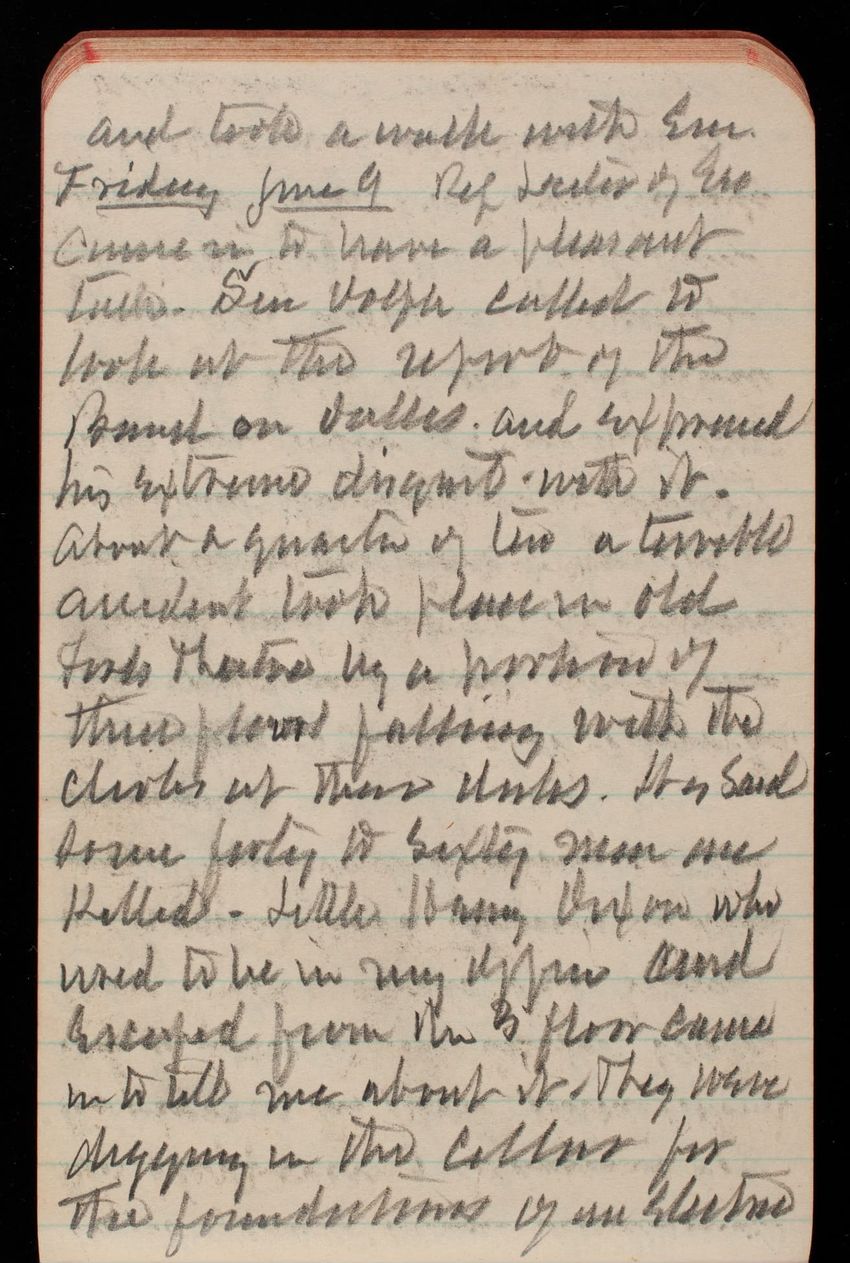 and took a walk with Em.
Friday June 9 Rep Lester of Geo
came in to have a pleasant
talk. Sen Dolph called to
look at the report of the
Board on Dalles. and expressed
his extreme disgust with it.
About a quarter of ten a terrible
accident took place in old
Fords Theatre by a portion of
three floors falling with the
clerks at their desks. It is said
some forty to sixty men are
Killed - Little Harry Dixon who
used to be in my office and
Escaped from the 3 floor came
in to tell me about it. They were
digging in the cellar for
the foundations of an Electric